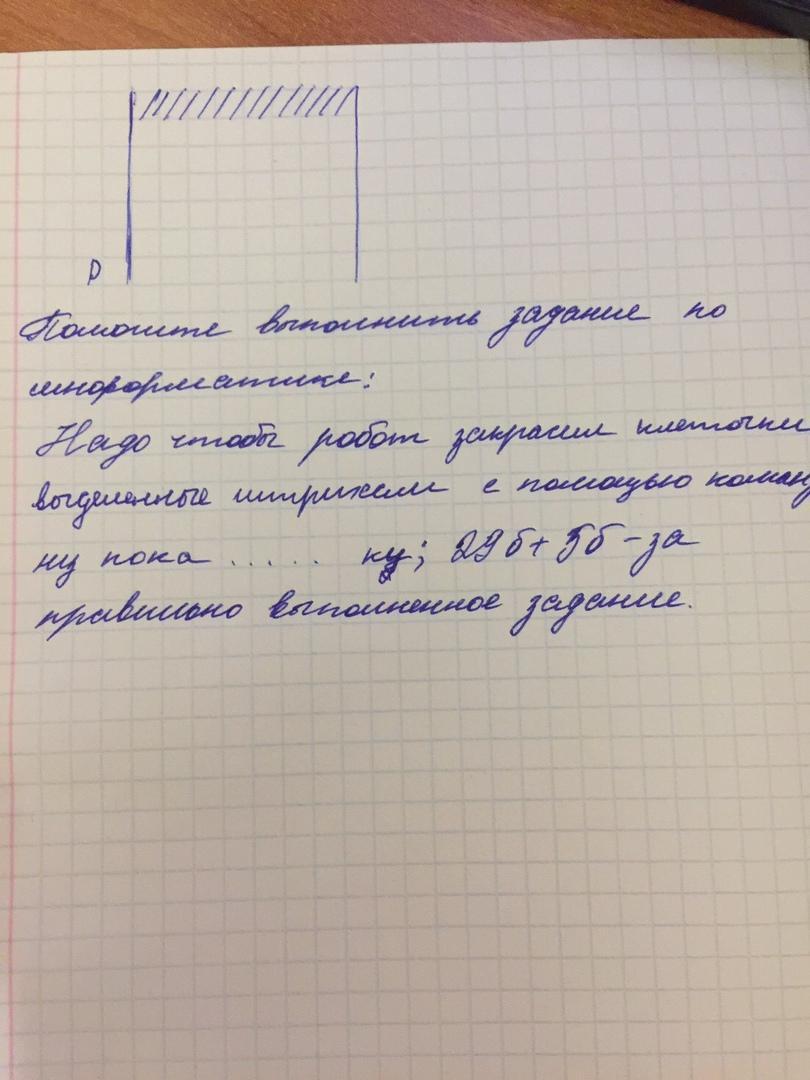 Р
Помогите выполнить задание по
информатике:
Надо чтобы робот закрасил клеточки
выделенные штрихами с помощью коман
ну пока ..... кц; 29б + 5б - за
правильно выполненное задание.